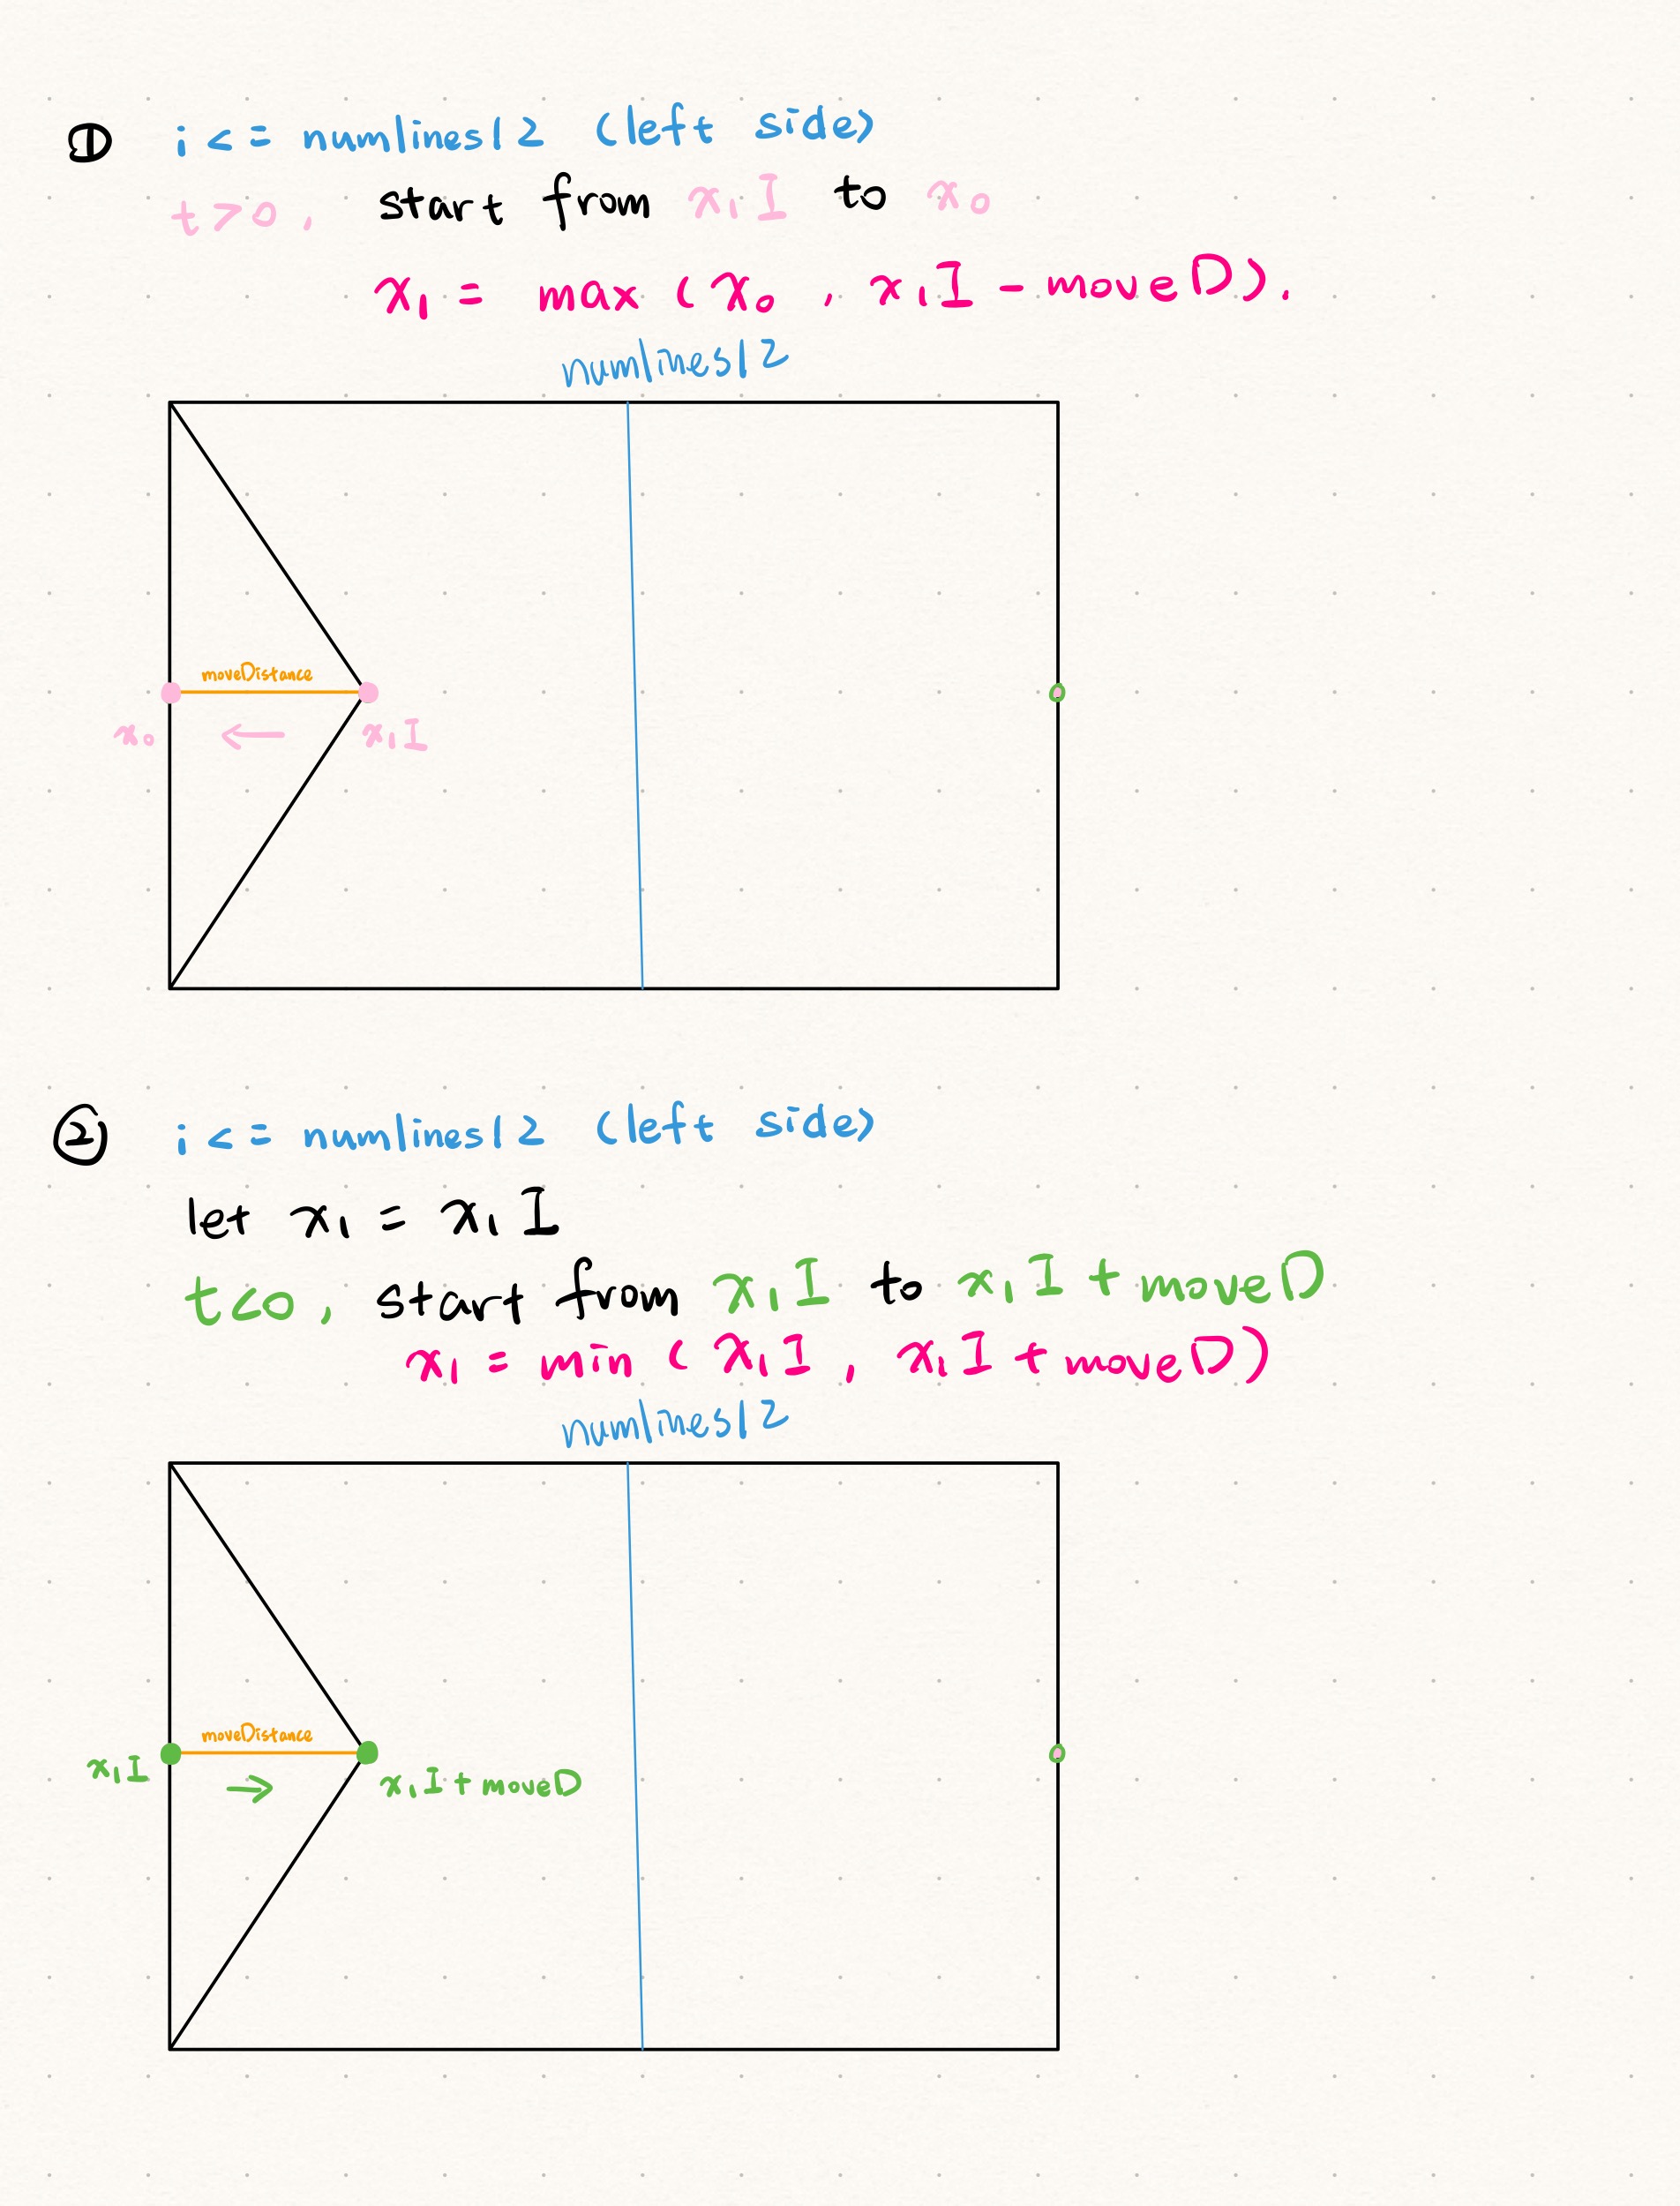 ① i <= numlines/2 (left side)
t>0, start from x₁I to x₀
x₁ = max (x₀ , x₁I - moveD).
numlines/2
moveDistance
x₀ ← x₁I
② i <= numlines/2 (left side)
let x₁ = x₁I
t<0, start from x₁I to x₁I + moveD
x₁ = min (x₁I , x₁I + moveD)
numlines/2
moveDistance
x₁I → x₁I + moveD